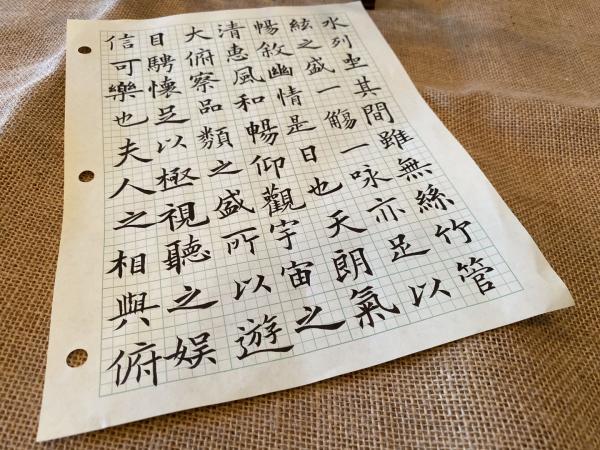 水列坐其間雖無絲竹管
絃之盛一觴一咏亦足以
暢敘幽情是日也天朗氣
清惠風和暢仰觀宇宙之
大俯察品類之盛所以遊
目騁懷足以極視聽之娯
信可樂也夫人之相與俯